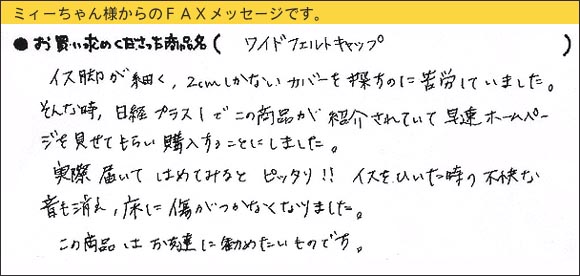 ミィーちゃん様からのＦＡＸメッセージです。
●お買い求めくださった商品名( ワイドフェルトキャップ )
イス脚が細く、2cmしかないカバーを探すのに苦労していました。
そんな時、日経プラス1でこの商品が紹介されていて早速ホームペー
ジを見せてもらい購入することにしました。
実際届いてはめてみるとピッタリ!! イスをひいた時の不快な
音も消え、床に傷がつかなくなりました。
この商品はお友達に勧めたいものです。